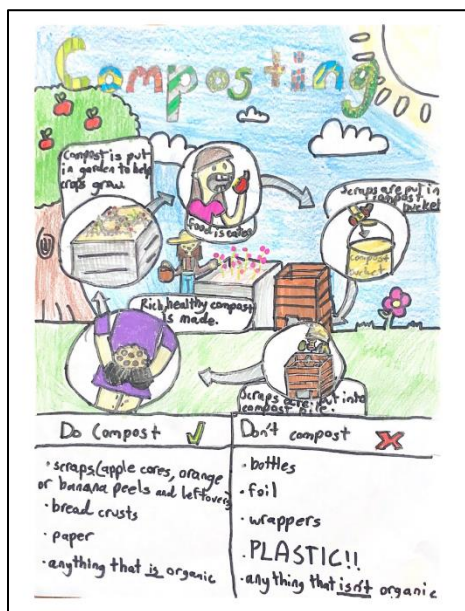 Composting
Compost is put
in garden to help
crops grow.
food is eaten
Scraps are put in
compost
bucket
compost
bucket
Rich, healthy compost
is made.
Scraps are put into
compost pile.
Do Compost
• scraps (apple cores, orange
or banana peels and leftovers)
• bread crusts
• paper
• anything that is organic
Don't compost
• bottles
• foil
• wrappers
• PLASTIC!!
• anything that isn't organic